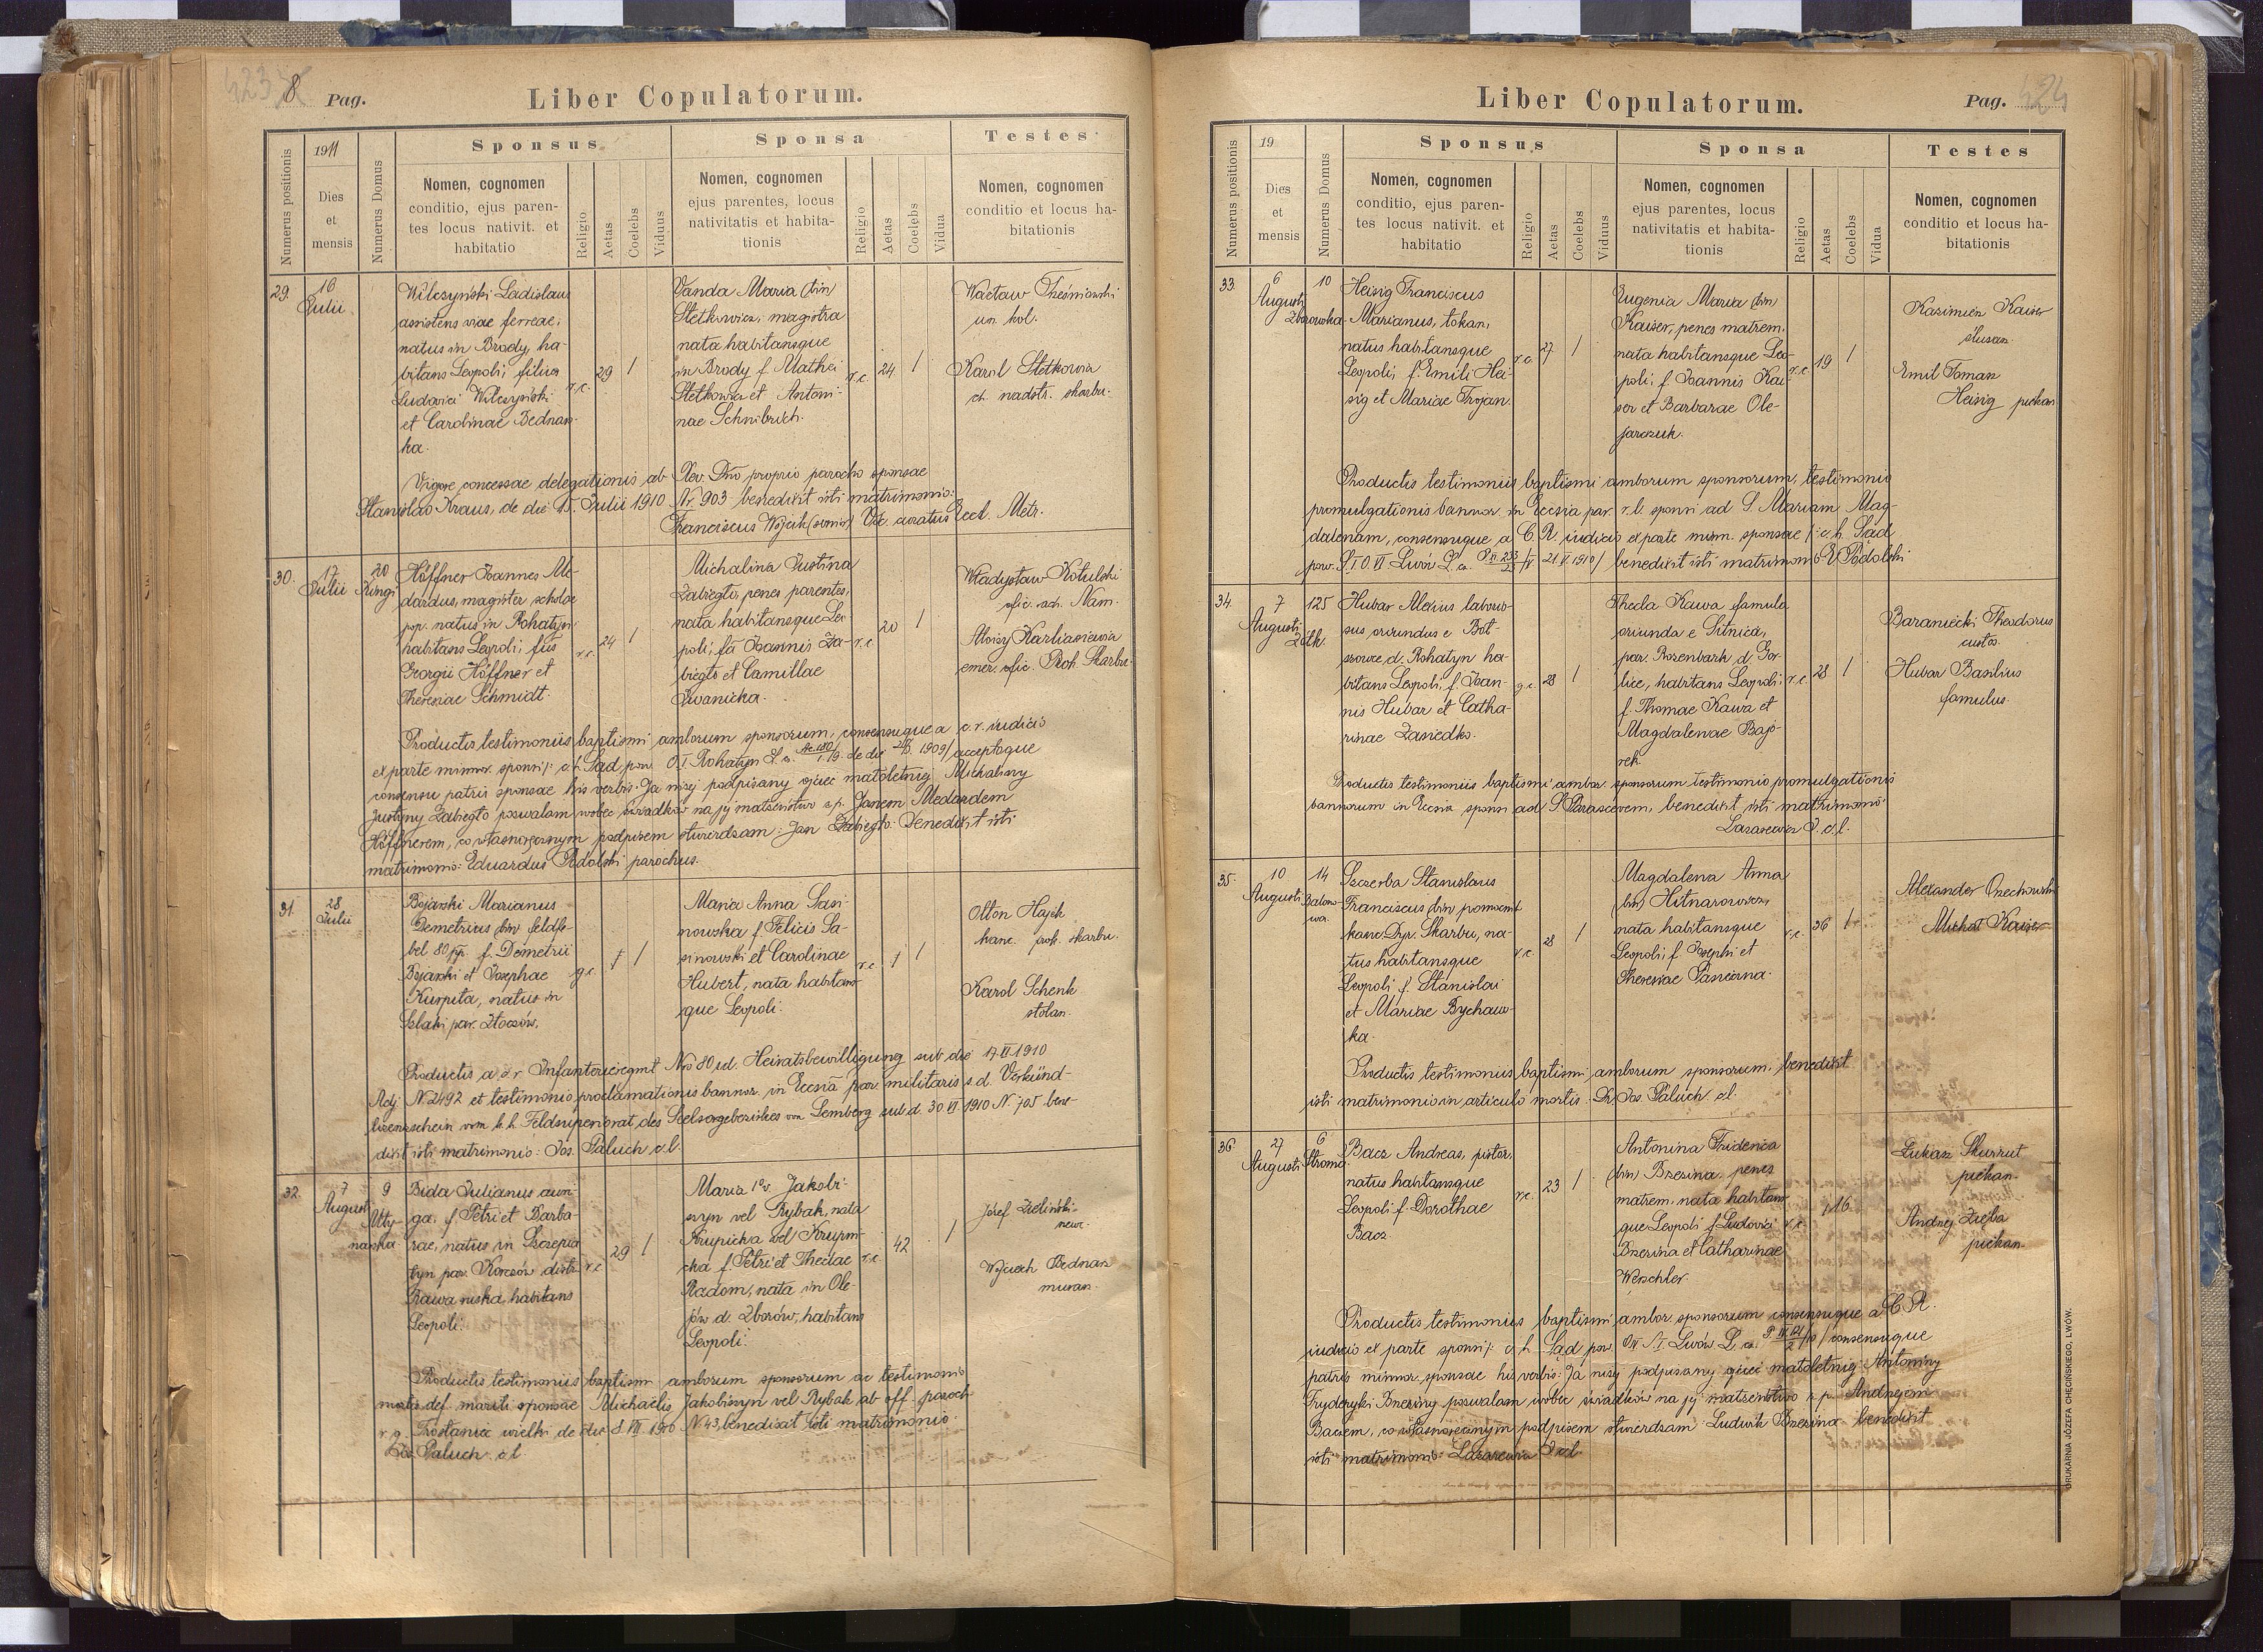 8 Pag.
Liber Copulatorum.
Numerus positionis
1911
Dies
et
mensis
Numerus Domus
Sponsus
Nomen, cognomen
conditio, ejus paren-
tes locus nativit. et
habitatio
Religio
Aetas
Coelebs
Viduus
Sponsa
Nomen, cognomen
ejus parentes, locus
nativitatis et habita-
tionis
Religio
Aetas
Coelebs
Vidua
Testes
Nomen, cognomen
conditio et locus ha-
bitationis
29.
16
Julii
Wilczyński Ladislaus
assistens viae ferreae,
natus in Brody, ha-
bitans Leopoli, filius
Ludovici Wilczyński
et Carolinae Bednar-
ka.
r.c.
29
1
Vanda Maria (bin)
Stetkiewicz, magistra
nata habitansque
in Brody f. Mathei
Stetkowicz et Antoni-
nae Schnibrich.
r.c.
24
1
Wacław
un. kol.
Karol Stetkowicz
nadstr. skarbu.
Vigore concessae delegationis ab Rev. Dno proprio parocho sponsae
Stanislao Kraus, de die 15. Julii 1910 Nr. 903 benedixit isti matrimonio:
Franciscus Wójcik (senior) Vic. curatus Eccl. Metr.
30.
17
Julii
20
Kingi
Höffner Joannes Me-
dardus, magister scholae
pop. natus in Rohatyn
habitans Leopoli, fius
Georgii Höffner et
Theresiae Schmidt.
r.c.
24
1
Michalina Justina
Zabiegło, penes parentes,
nata habitansque Leo-
poli, fa Joannis Za-
biegło et Camillae
Iwanicka.
r.c.
20
1
Władysław Kotulski
ofic. rach. Nam.
Alojzy Karliasiewicz
emer. ofic. Skarbu
Productis testimoniis baptismi amborum sponsorum, consensuque a c.r. iudicio
ex parte minnor. sponsi /: c.k. Sąd pow. O.I Rohatyn L. cz. de die 1909/ acceptoque
consensu patris sponsae his verbis: Ja niżej podpisany ojciec małoletniej Michaliny
Justyny Zabiegło pozwalam wobec świadków na jej małżeństwo z p. Janem Medardem
Höffnerem, co własnoręcznym podpisem stwierdzam: Jan Zabiegło: Benedixit isti
matrimonio: Eduardus Podolski parochus.
31.
28
Julii
Bojarski Marianus
Demetrius (bin) feldfe-
bel 80 pp. f. Demetrii
Bojarski et Josephae
Kurpita, natus in
Szlaki par. Złoczów.
g.c.
1
Maria Anna Sasi-
nowska f. Felicis Sa-
sinowski et Carolinae
Hubert, nata habitans-
que Leopoli.
r.c.
1
Otton Hajek
kanc. prok. skarbu.
Karol Schenk
stolarz.
Productis a c.r Infanterieregmt No 80 ud. Heiratsbewilligung sub die 17.VI.1910
Adj. N.2492 et testimonio proclamationis bannor. in Eccsia par. militaris s.d. Verkünd-
scheinschein vom k.k. Feldsuperiorat des Seelsorgebezirkes von Lemberg sub d. 30 VI 1910 N. 705 bene-
dixit isti matrimonio: Jos. Paluch c.l.
32.
7
August
9
Bida Julianus auri-
ga, f. Petri et Barba-
rae, natus in Szczepia-
tyn par. Korczów distr.
Rawa ruska, habitans
Leopoli.
r.c.
29
1
Maria 1o v. Jakobi-
szyn vel Rybak, nata
Krupicka vel Krupni-
cka f. Petri et Theclae
Radom, nata in Ole-
jów d. Zborów, habitans
Leopoli.
r.c.
42
1
Józef Zieliński
Wojciech Bednarz
murarz.
Productis testimoniis baptismi amborum sponsorum ac testimonio
mortis def. mariti sponsae Michaëlis Jakobiszyn vel Rybak ab off. paroch.
Trościaniec wielki de die 8 VII 1910 N 43, benedixit isti matrimonio.
Jos. Paluch c.l.
Liber Copulatorum.
Pag. 424
Numerus positionis
19
Dies
et
mensis
Numerus Domus
Sponsus
Nomen, cognomen
conditio, ejus paren-
tes locus nativit. et
habitatio
Religio
Aetas
Coelebs
Viduus
Sponsa
Nomen, cognomen
ejus parentes, locus
nativitatis et habita-
tionis
Religio
Aetas
Coelebs
Vidua
Testes
Nomen, cognomen
conditio et locus ha-
bitationis
33.
6
Augusti
10
Zborowska
Heisig Franciscus
Marianus, tokarz,
natus habitansque
Leopoli, f. Emili Hei-
sig et Mariae Trojan.
r.c.
27
1
Eugenia Maria (bin)
Kaiser, penes matrem,
nata habitansque Leo-
poli, f. Joannis Kai-
ser et Barbarae Ole-
jarczuk.
r.c.
19
1
Kazimierz Kaiser
ślusarz.
Emil Tomasz
Heisig piekarz
Productis testimoniis baptismi amborum sponsorum, testimonio
promulgationis bannor. in Eccsia par. r.l. sponsi ad S. Mariam Mag-
dalenam, consensuque a C.R. iudicio ex parte minn. sponsae /: c.k. Sąd
pow. S.I O.VI Lwów L. cz. 21 V. 1910/ benedixit isti matrimonio E Podolski
34.
7
Augusti
125
Żółk.
Hubar Alexius laborio-
sus oriundus e Bot-
szowce, d. Rohatyn ha-
bitans Leopoli, f. Joan-
nis Hubar et Catha-
rinae Zasiedko.
g.c.
28
1
Thecla Kawa famula
oriunda e Sitnica,
par. Rozenbark d. Gor-
lice, habitans Leopoli,
f. Thomae Kawa et
Magdalenae Bajo-
rek.
r.c.
28
1
Baraniecki Theodorus
custos.
Hubar Basilius
famulus.
Productis testimoniis baptismi ambor. sponsorum testimonio promulgationis
bannorum in Eccsia sponsi ad S. Parascevem, benedixit isti matrimonio
Lazarewicz c.l.
35.
10
Augusti
14
Szczerba Stanislaus
Franciscus (bin) pomocnik
kanc. Dyr. Skarbu, na-
tus habitansque
Leopoli f. Stanislai
et Mariae Bychaw-
ka.
r.c.
28
1
Magdalena Anna
(bin) Hitnarowicz,
nata habitansque
Leopoli, f. Josephi et
Theresiae Pasierna.
r.c.
36
1
Alexander Orzechowski
Michał Kaiser
Productis testimoniis baptismi amborum sponsorum, benedixit
isti matrimonio in articulo mortis. Dr Jos. Paluch cl.
36.
27
Augusti
6
Stroma
Bacz Andreas, pistor,
natus habitansque
Leopoli f. Dorothae
Bacz.
r.c.
23
1
Antonina Friderica
(bin) Brzezina, penes
matrem, nata habitans-
que Leopoli f. Ludovici
Brzezina et Catharinae
Werschler.
r.c.
16
Łukasz Skurzut
piekarz.
Andrzej Zięba
piekarz.
Productis testimoniis baptismi ambor. sponsorum consensuque a C.R.
iudicio ex parte sponsi /: c.k. Sąd pow. S.I Lwów L. cz. / consensuque
patris minnor. sponsae his verbis: Ja niżej podpisany ojciec małoletniej Antoniny
Fryderyki Brzeziny pozwalam wobec świadków na jej małżeństwo z p. Andrzejem
Baczem, co własnoręcznym podpisem stwierdzam: Ludwik Brzezina benedixit
isti matrimonio: Lazarewicz cl.
DRUKARNIA JÓZEFA CHECIŃSKIEGO, LWÓW.